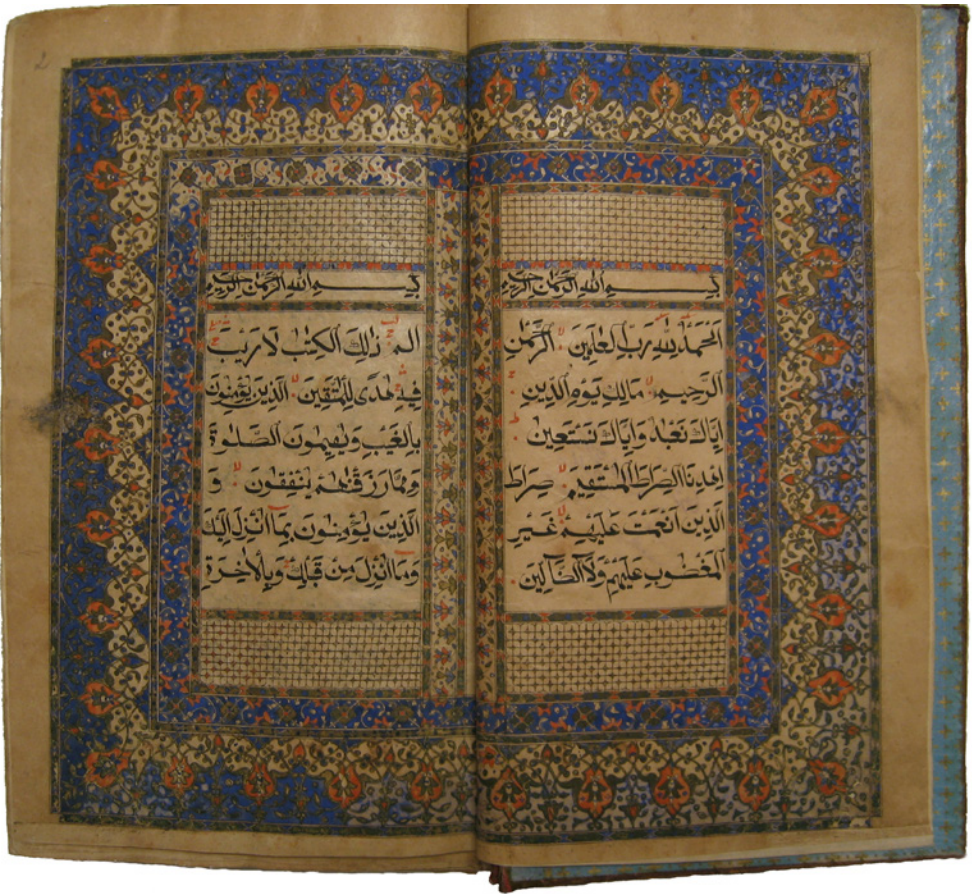 بسم الله الرحمن الرحيم
الحمد لله رب العلمين الرحمن
الرحيم مالك يوم الدين
اياك نعبد واياك نستعين
اهدنا الصراط المستقيم صراط
الذين انعمت عليهم غير
المغضوب عليهم ولا الضالين
بسم الله الرحمن الرحيم
الم ذلك الكتب لا ريب
فيه هدى للمتقين الذين يؤمنون
بالغيب ويقيمون الصلوة
ومما رزقنهم ينفقون و
الذين يؤمنون بما انزل اليك
وما انزل من قبلك وبالاخرة
2